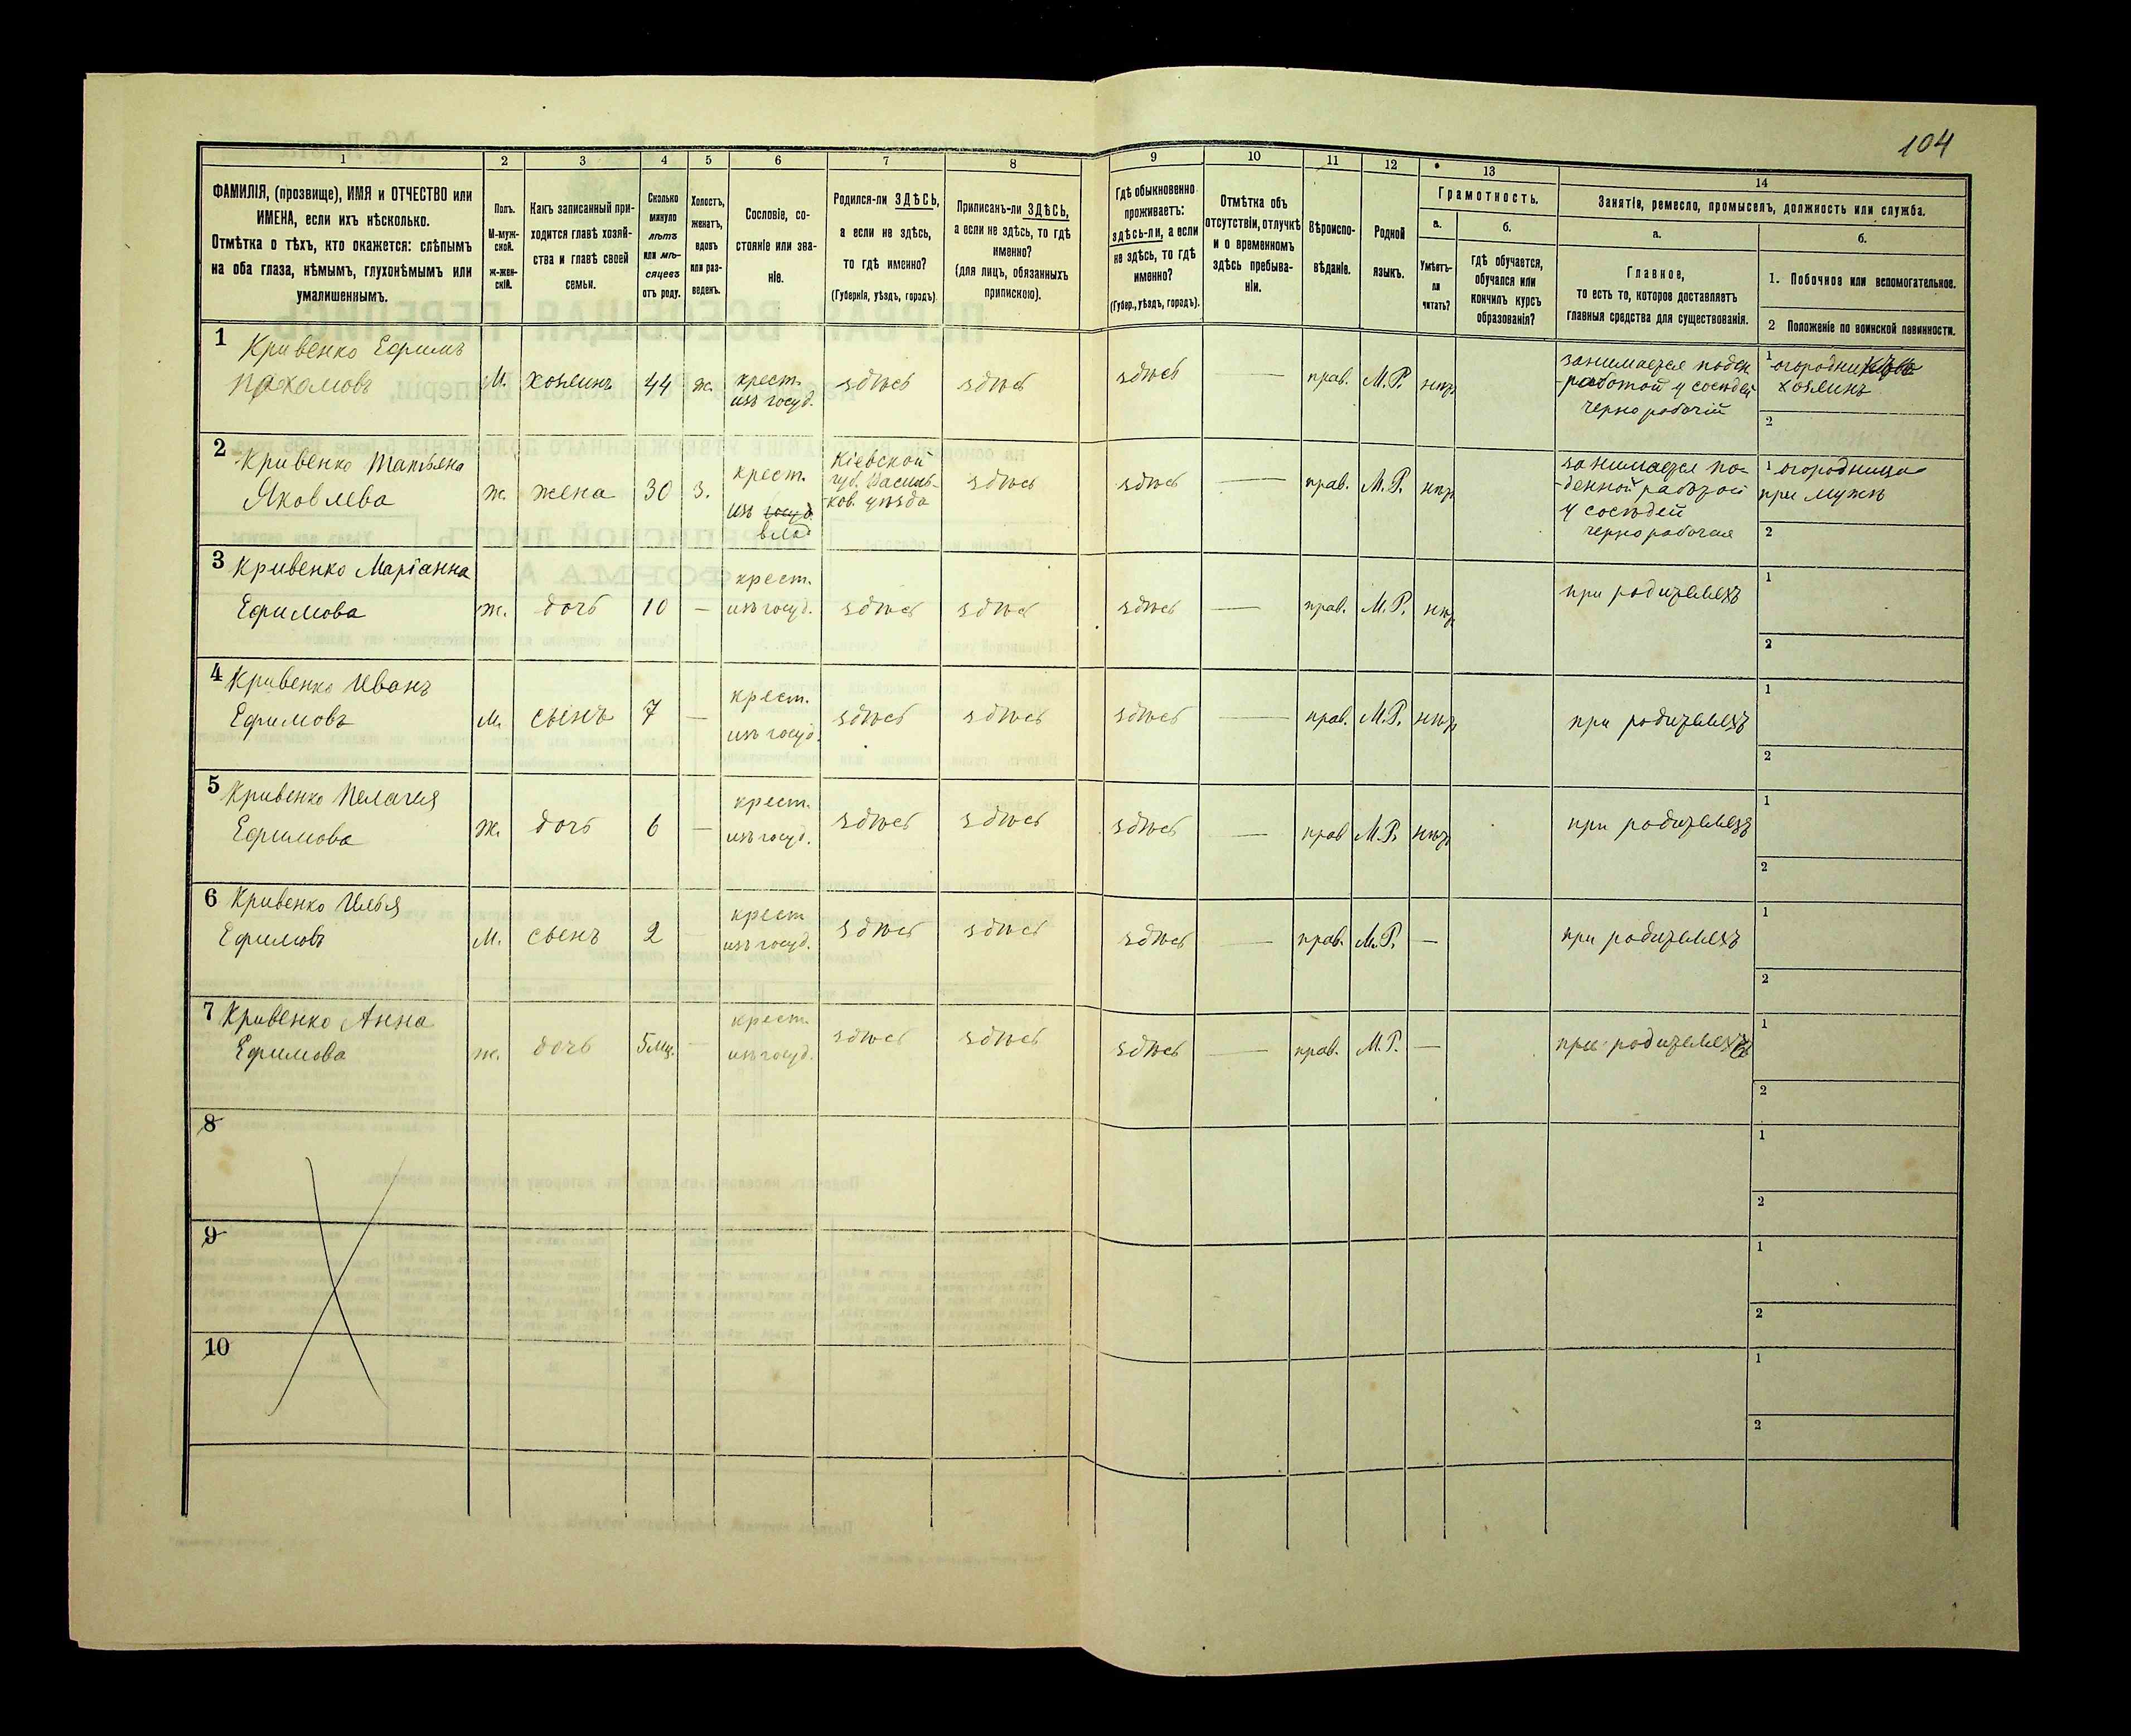 104
1 2 3 4 5 6 7 8 9 10 11 12 13 14
ФАМИЛІЯ, (прозвище), ИМЯ и ОТЧЕСТВО или
ИМЕНА, если ихъ нѣсколько.
Отмѣтка о тѣхъ, кто окажется: слѣпымъ
на оба глаза, нѣмымъ, глухонѣмымъ или
умалишеннымъ.
Полъ.
М-муж-
ской.
Ж-жен-
скій.
Какъ записанный при-
ходится главѣ хозяй-
ства и главѣ своей
семьи.
Сколько
минуло
лѣтъ
или мѣ-
сяцевъ
отъ роду.
Холостъ,
женатъ,
вдовъ
или раз-
веденъ.
Сословіе, со-
стояніе или зва-
ніе.
Родился-ли ЗДѢСЬ,
а если не здѣсь,
то гдѣ именно?
(Губернія, уѣздъ, городъ)
Приписанъ-ли ЗДѢСЬ,
а если не здѣсь, то гдѣ
именно?
(для лицъ, обязанныхъ
припискою).
Гдѣ обыкновенно
проживаетъ:
здѣсь-ли, а если
не здѣсь, то гдѣ
именно?
(Губер., уѣздъ, городъ).
Отмѣтка объ
отсутствіи, отлучкѣ
и о временномъ
здѣсь пребыва-
ніи.
Вѣроиспо-
вѣданіе.
Родной
языкъ.
Грамотность.
а.
Умѣетъ-
ли
читать?
б.
гдѣ обучается,
обучался или
кончилъ курсъ
образованія?
Занятіе, ремесло, промыселъ, должность или служба.
а.
Главное,
то есть то, которое доставляетъ
главныя средства для существованія.
б.
1. Побочное или вспомогательное.
2 Положеніе по воинской повинности.
1 Кривенко Ефимъ
Пахомовъ М. хозяинъ 44 ж. крест. изъ госуд. здѣсь здѣсь здѣсь — прав. М.Р. нѣтъ
занимается поден
-работой у сосѣдей
чернорабочій
1 огородникъ
хозяинъ
2
2 Кривенко Татьяна
Яковлева ж. жена 30 з. крест. изъ госуд. влад
Кіевской
губ. Василь-
ков. уѣзда
здѣсь здѣсь — прав. М.Р. нѣтъ
занимается по-
денной работой
у сосѣдей
чернорабочая
1 огородница
при мужѣ
2
3 Кривенко Маріанна
Ефимова ж. дочь 10 — крест. изъ госуд. здѣсь здѣсь здѣсь — прав. М.Р. нѣтъ при родителяхъ
1
2
4 Кривенко Иванъ
Ефимовъ М. сынъ 7 — крест. изъ госуд. здѣсь здѣсь здѣсь — прав. М.Р. нѣтъ при родителяхъ
1
2
5 Кривенко Пелагея
Ефимова Ж. дочь 6 — крест. изъ госуд. здѣсь здѣсь здѣсь — прав М.Р. нѣтъ при родителяхъ
1
2
6 Кривенко Илья
Ефимовъ М. сынъ 2 — крест изъ госуд. здѣсь здѣсь здѣсь — прав. М.Р. — при родителяхъ
1
2
7 Кривенко Анна
Ефимова ж. дочь 5 мц. — крест. изъ госуд. здѣсь здѣсь здѣсь — прав. М.Р. — при родителяхъ
1
2
8
1
2
9
1
2
10
1
2